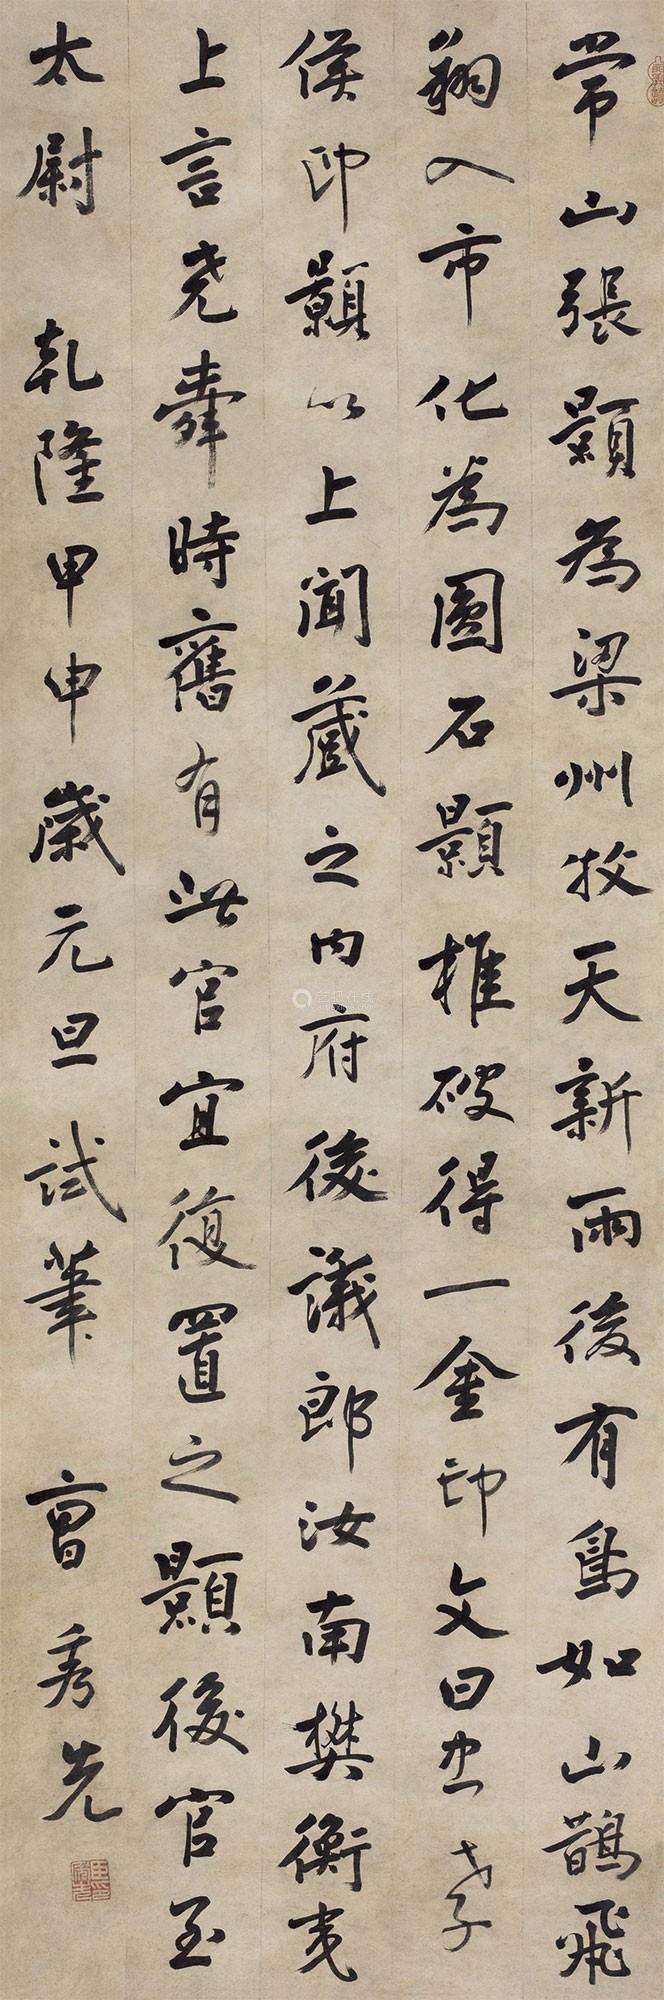 常山張顥為梁州牧天新雨後有鳥如山鵲飛
翔入市化為圓石顥椎破得一金印文曰忠孝
侯印顥以上聞藏之内府後議郎汝南樊衡夷
上言尧舜時舊有此官宜復置之顥後官至
太尉 乾隆甲申歲元旦試筆 曹秀先